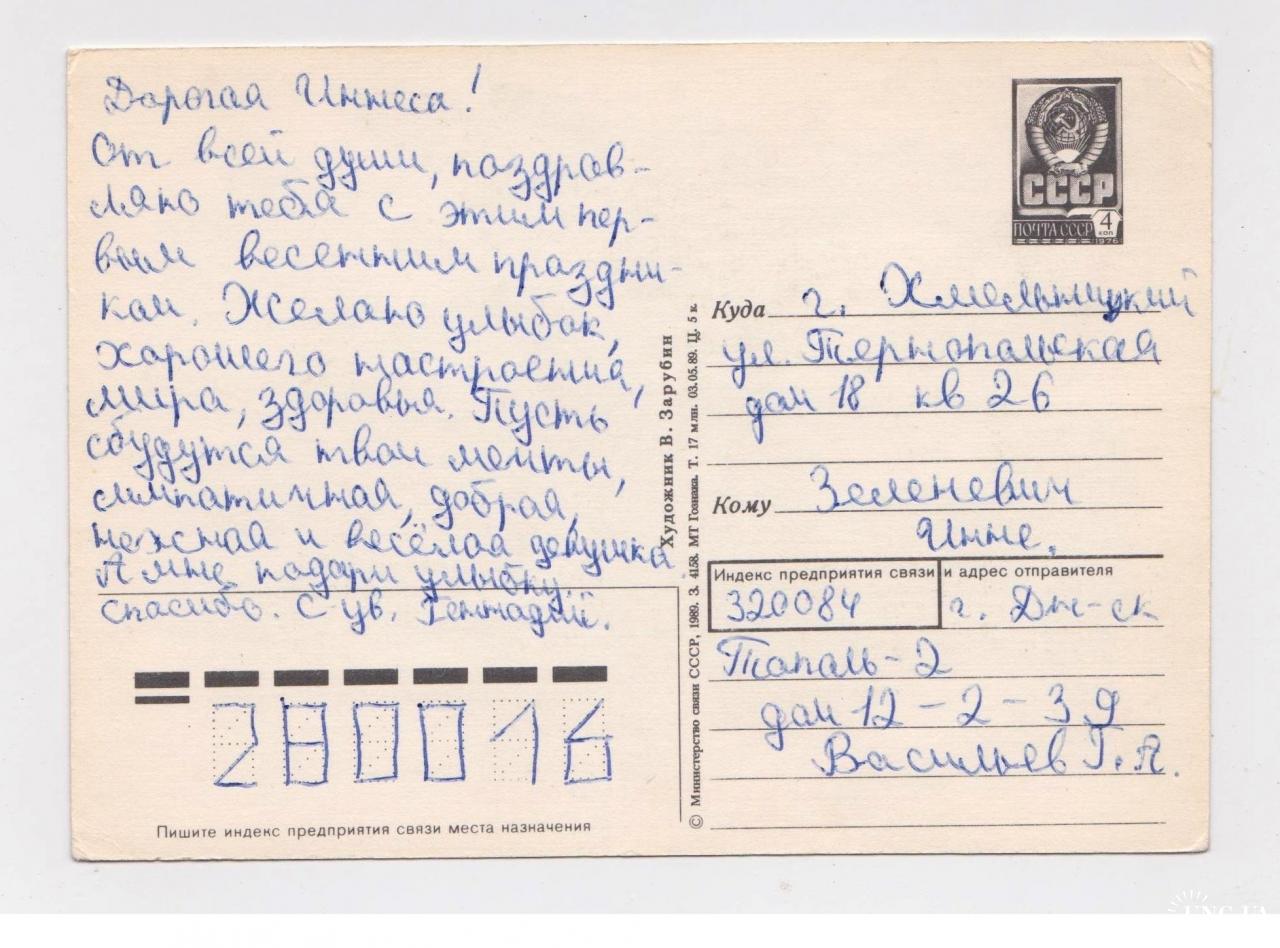 Дорогая Иннеса!
От всей души, поздрав-
ляю тебя с этим пер-
вым весенним праздни-
ком. Желаю улыбок,
хорошего настроения,
мира, здоровья. Пусть
сбудутся твои мечты,
симпатичная, добрая,
нежная и весёлая девушка.
А мне подари улыбку.
спасибо. С ув. Геннадий.
280016
Пишите индекс предприятия связи места назначения
Художник В. Зарубин
© Министерство связи СССР, 1989. З. 4158. МТ Гознака. Т. 17 млн. 03.05.89. Ц. 5 к.
СССР
ПОЧТА СССР 4 коп
1976
Куда г. Хмельницкий
ул. Тернопольская
дом 18 кв 26
Кому Зеленевич
Инне.
Индекс предприятия связи и адрес отправителя
320084 г. Дн-ск
Тополь-2
дом 12-2-39
Васильев Г. А.